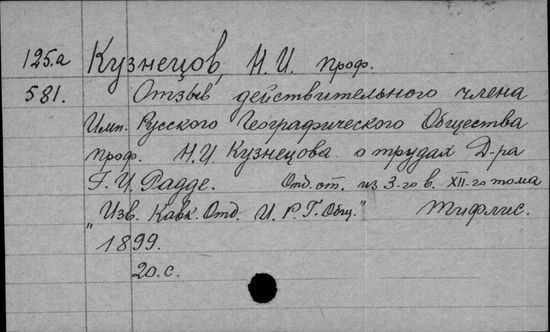 125.a Кузнецов, Н.И. проф.
581. Отзыв действительного члена
Имп. Русского Географического Общества
проф. Н.И. Кузнецова о трудах Д-ра
Г.И. Радде. Отд. от. из 3-го в. XII-го тома
"Изв. Кавк. Отд. И. Р. Г. Общ." Тифлис.
1899.
20.с.